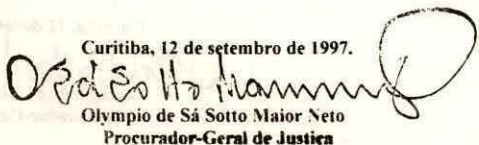 Curitiba, 12 de setembro de 1997.
Olympio de Sá Sotto Maior Neto
Procurador-Geral de Justiça